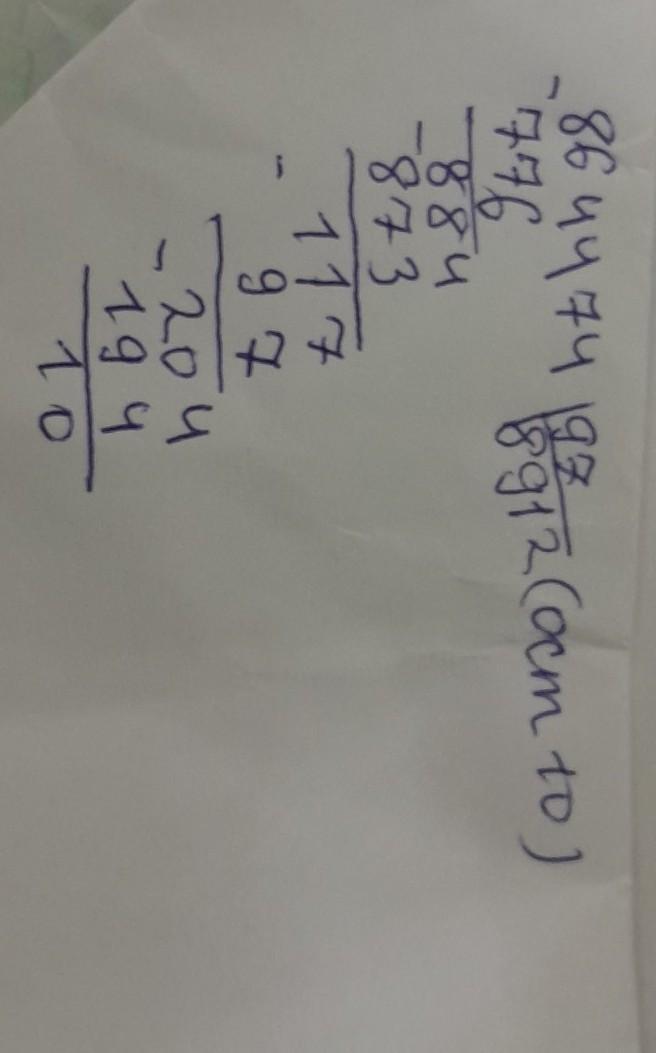 -864474 |97
776 8912 (ост 10)
-884
873
- 117
97
-204
194
10